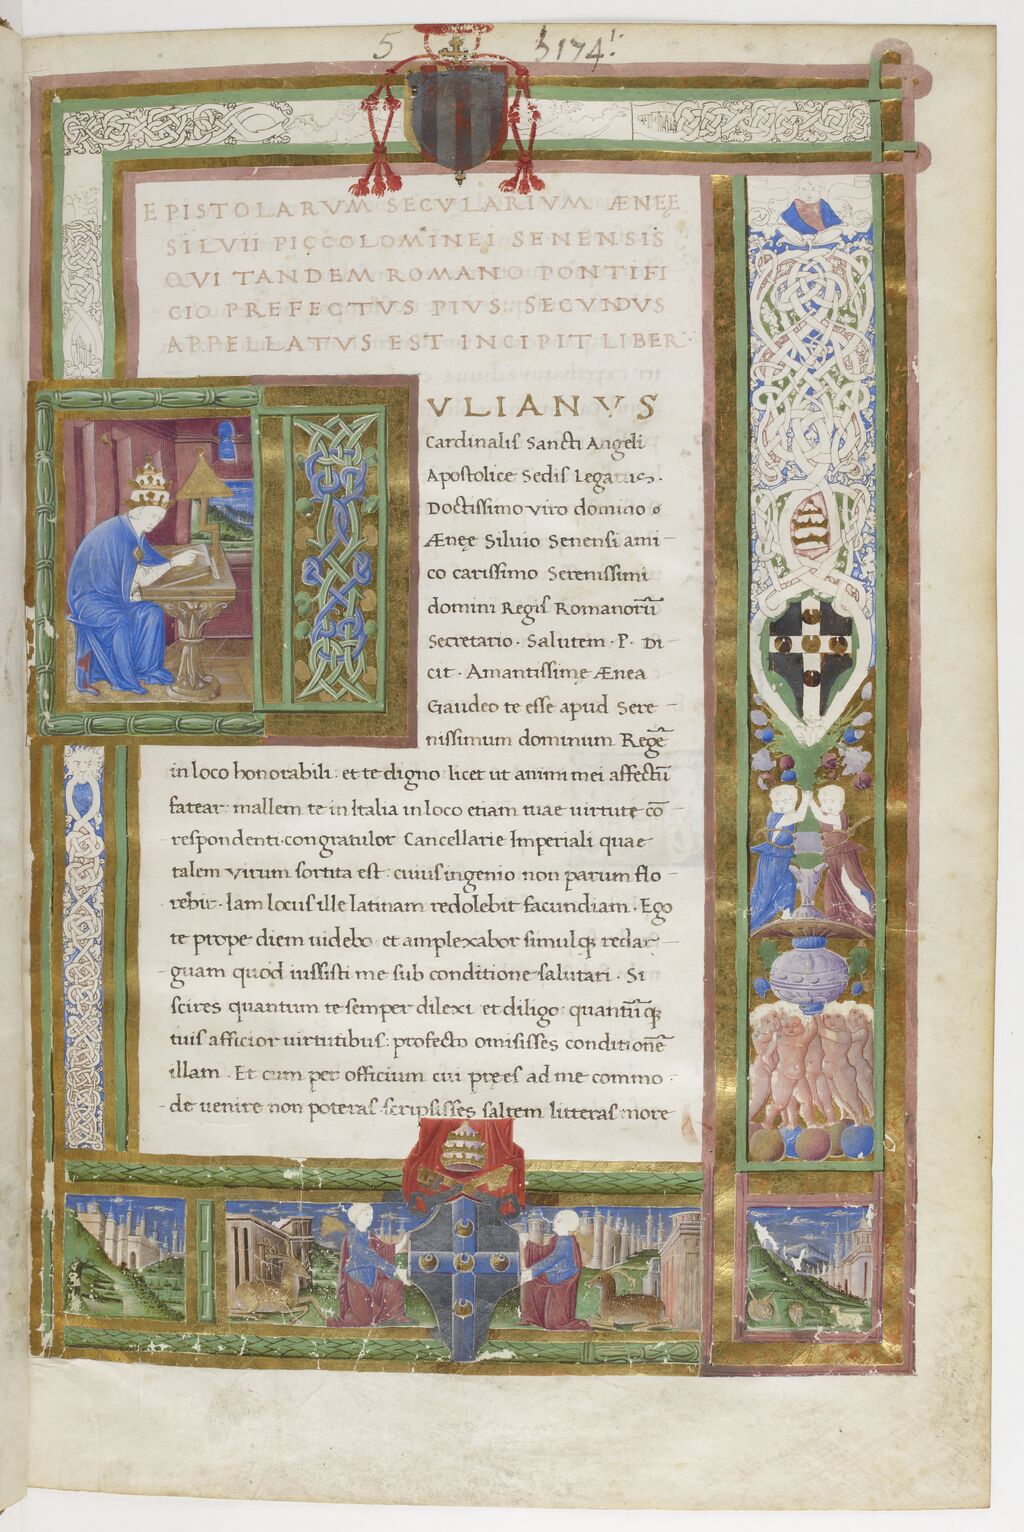 5 3174
EPISTOLARVM SECVLARIVM ÆNĘE
SILVII PICCOLOMINEI SENENSIS
QVI TANDEM ROMANO PONTIFI
CIO PREFECTVS PIVS SECVNDVS
APPELLATVS EST INCIPIT LIBER·
I
VLIANVS
Cardinalis Sancti Angeli
Apostolice Sedis Legatus·
Doctissimo viro domino
Ænęe Silvio Senensi ami-
co carissimo Serenissimi
domini Regis Romanorū
Secretario· Salutem· P· Di-
cit· Amantissime Ænea
Gaudeo te esse apud Sere-
nissimum dominum Regē
in loco honorabili: et te digno: licet ut animi mei affectū
fatear: mallem te in Italia in loco etiam tuae uirtute cō-
respondenti. congratulor Cancellarie Imperiali quae
talem virum sortita est: cuius ingenio non parum flo-
rebit· Iam locus ille latinam redolebit facundiam· Ego
te prope diem uidebo: et amplexabor simulq; redar-
guam quod iussisti me sub conditione salutari· Si
scires quantum te semper dilexi et diligo: quantūq;
tuis afficior uirtutibus: profecto omisisses conditionē
illam· Et cum per officium cui pręes ad me commo-
de uenire non poteras scripsisses saltem litteras more